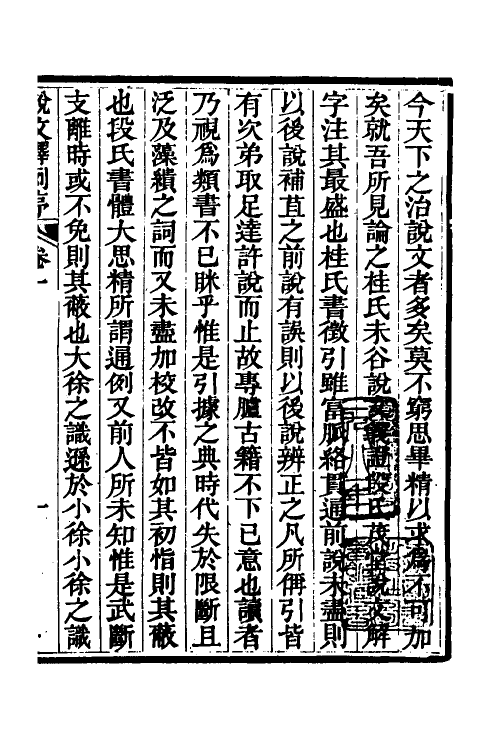 今天下之治說文者多矣莫不窮思畢精以求為不可加
矣就吾所見論之桂氏未谷說文義證段氏茂堂說文解
字注其最盛也桂氏書徵引雖富脈絡貫通前說未盡則
以後說補苴之前說有誤則以後說辨正之凡所偁引皆
有次弟取足達許說而止故專臚古籍不下己意也讀者
乃視爲類書不已眯乎惟是引據之典時代失於限斷且
泛及藻繢之詞而又未盡加校改不皆如其初恉則其蔽
也段氏書體大思精所謂通例又前人所未知惟是武斷
支離時或不免則其蔽也大徐之識遜於小徐小徐之識
說文釋例序 卷一 一